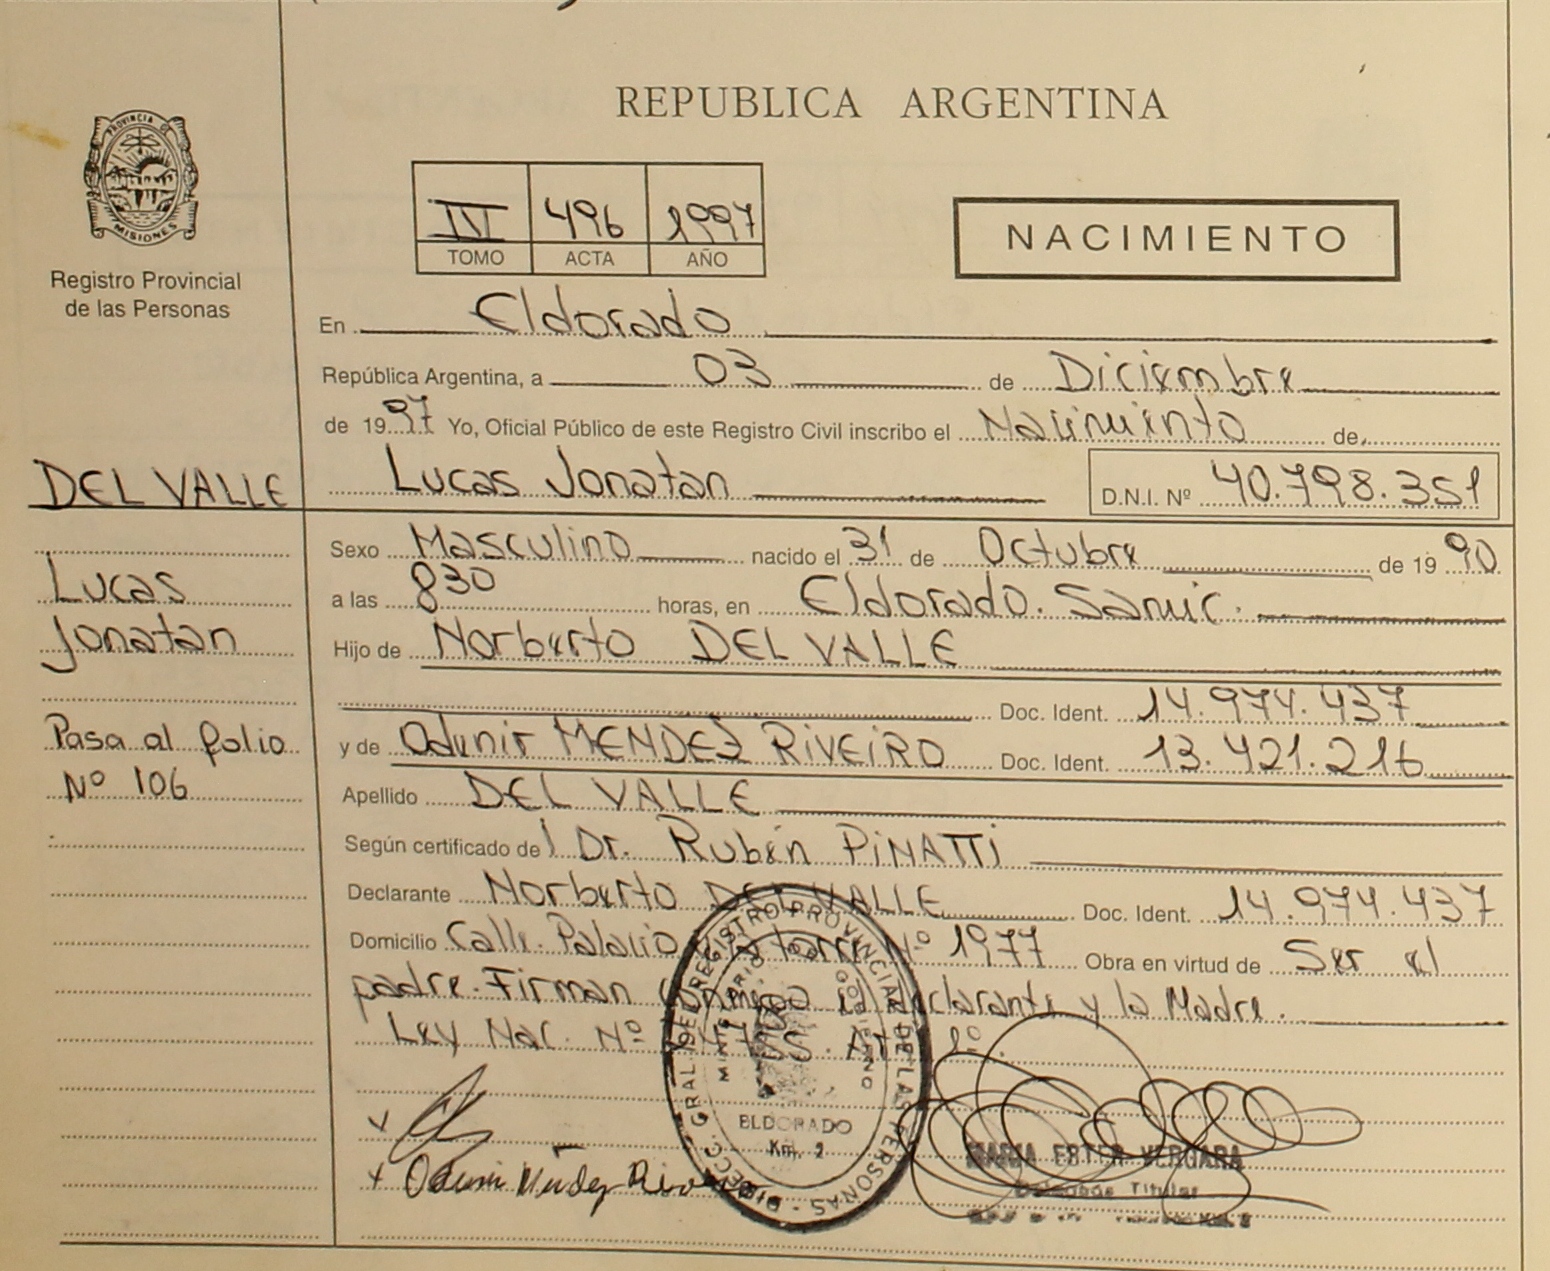 REPUBLICA ARGENTINA
PROVINCIA DE
MISIONES
Registro Provincial
de las Personas
IV 496 1997
TOMO ACTA AÑO
NACIMIENTO
En Eldorado
República Argentina, a 03 de Diciembre
de 1997 Yo, Oficial Público de este Registro Civil inscribo el Nacimiento de
DEL VALLE Lucas Jonatan D.N.I. Nº 40.798.351
Sexo Masculino nacido el 31 de Octubre de 1990
Lucas a las 830 horas, en Eldorado. Samic.
Jonatan Hijo de Norberto DEL VALLE
Doc. Ident. 14.974.437
Pasa al folio y de MENDEZ RIVEIRO Doc. Ident. 13.421.216
Nº 106 Apellido DEL VALLE
Según certificado de Dr. Rubén PINATTI
Declarante Norberto DEL VALLE Doc. Ident. 14.974.437
Domicilio Calle Palacio Nº 1977 Obra en virtud de Ser el
padre. Firman conmigo el declarante y la Madre.
Ley Nac. Nº
DIRECC. GRAL. DEL REGISTRO PROVINCIAL DE LAS PERSONAS
MINISTERIO DE GOBIERNO
ELDORADO
Km. 2
MARIA ESTER VERGARA
Titular